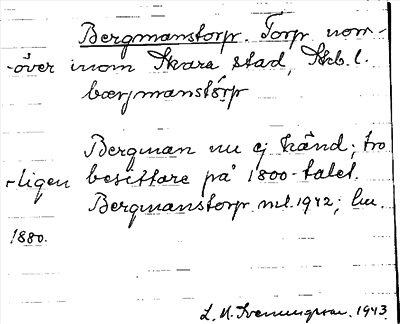 Bergmanstorp. Torp norr-
-över inom Skara stad, Skb. l.
bærjmanstórp
Bergman nu ej känd; tro
-ligen besittare på 1800-talet.
Bergmanstorp ml. 1942; hu.
1880.
L. M. Svenungsson. 1943.